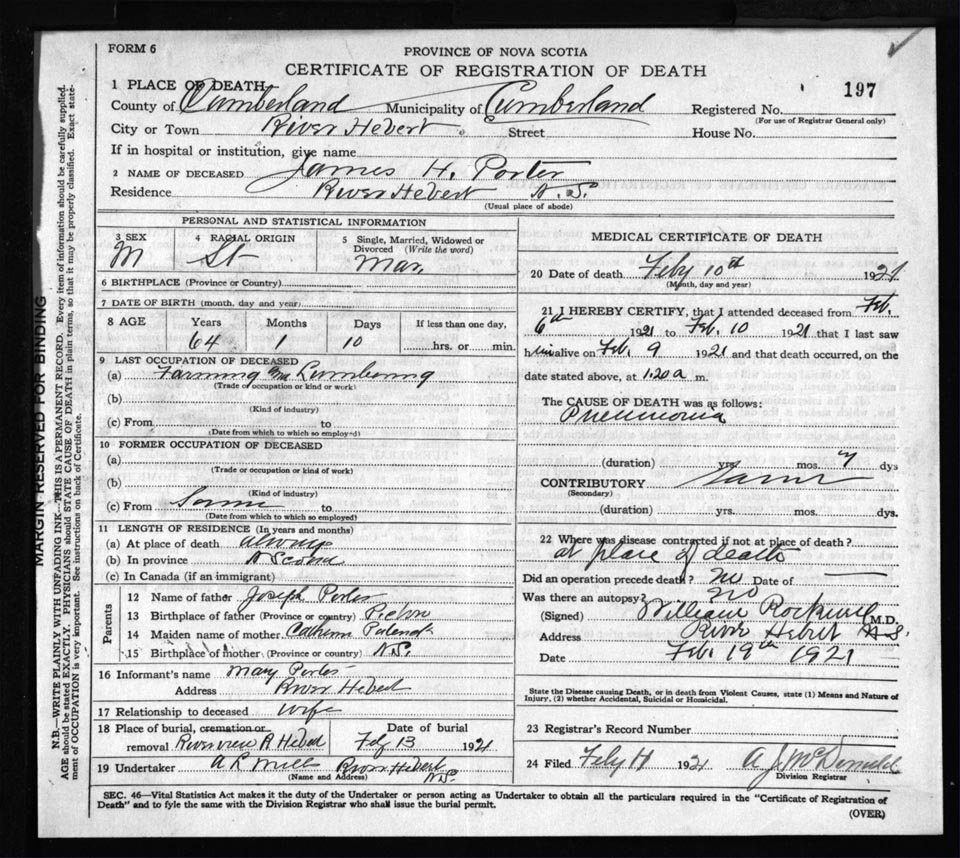 FORM 6
PROVINCE OF NOVA SCOTIA
CERTIFICATE OF REGISTRATION OF DEATH
197
1 PLACE OF DEATH
County of Cumberland Municipality of Cumberland Registered No.
(For use of Registrar General only)
City or Town River Hebert Street House No.
If in hospital or institution, give name
2 NAME OF DECEASED James H. Porter
Residence River Hebert N.S.
(Usual place of abode)
PERSONAL AND STATISTICAL INFORMATION
3 SEX M
4 RACIAL ORIGIN
5 Single, Married, Widowed or Divorced (Write the word) Mar.
6 BIRTHPLACE (Province or Country)
7 DATE OF BIRTH (month, day and year)
8 AGE Years Months Days If less than one day,
64 1 10 hrs. or min.
9 LAST OCCUPATION OF DECEASED
(a) Farming Lumbering
(Trade or occupation or kind or work)
(b)
(Kind of industry)
(c) From to
(Date from which to which so employed)
10 FORMER OCCUPATION OF DECEASED
(a)
(Trade or occupation or kind of work)
(b)
(Kind of industry)
(c) From Same to
(Date from which to which so employed)
11 LENGTH OF RESIDENCE (In years and months)
(a) At place of death always
(b) In province N Scotia
(c) In Canada (if an immigrant)
Parents
12 Name of father Joseph Porter
13 Birthplace of father (Province or country) Pictou
14 Maiden name of mother
15 Birthplace of mother (Province or country) N.S.
16 Informant's name Mary Porter
Address River Hebert
17 Relationship to deceased wife
18 Place of burial, cremation or Date of burial
removal Riverview R Hebert Feby 13 1921
19 Undertaker A R Mills River Hebert
(Name and Address) N.S.
MEDICAL CERTIFICATE OF DEATH
20 Date of death Feby 10th 1921
(Month, day and year)
21 I HEREBY CERTIFY, that I attended deceased from Feb.
6th 1921 to Feb. 10 1921 that I last saw
him alive on Feb. 9 1921 and that death occurred, on the
date stated above, at 1.20 a m.
The CAUSE OF DEATH was as follows:
Pneumonia
(duration) yrs. mos. dys
CONTRIBUTORY Same
(Secondary)
(duration) yrs. mos. dys.
22 Where was disease contracted if not at place of death?
at place of death
Did an operation precede death? no Date of —
Was there an autopsy? no
(Signed) William Rockwell M.D.
Address River Hebert N.S.
Date Feb. 19th 1921
State the Disease causing Death, or in death from Violent Causes, state (1) Means and Nature of
Injury, (2) whether Accidental, Suicidal or Homicidal.
23 Registrar's Record Number
24 Filed Feby 1921 A. J. McDonald
Division Registrar
SEC. 46—Vital Statistics Act makes it the duty of the Undertaker or person acting as Undertaker to obtain all the particulars required in the "Certificate of Registration of
Death" and to fyle the same with the Division Registrar who shall issue the burial permit.
(OVER)
MARGIN RESERVED FOR BINDING
N.B.—WRITE PLAINLY WITH UNFADING INK—THIS IS A PERMANENT RECORD. Every item of information should be carefully supplied.
AGE should be stated EXACTLY. PHYSICIANS should STATE CAUSE OF DEATH in plain terms, so that it may be properly classified. Exact state-
ment of OCCUPATION is very important. See instructions on back of Certificate.